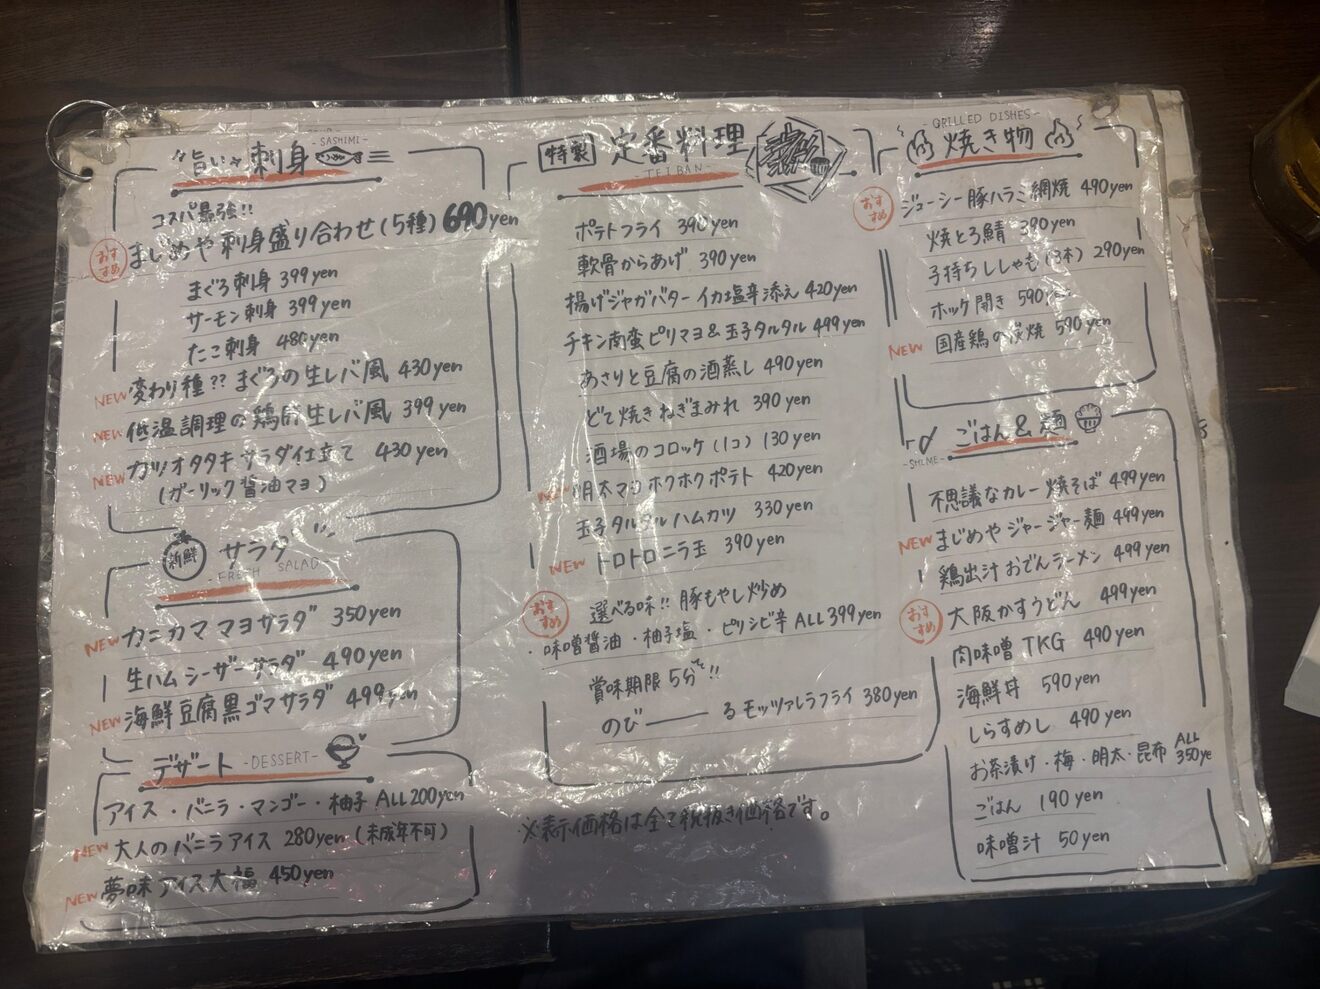 旨い 刺身 -SASHIMI-
コスパ最強!!
おすすめ まじめや刺身盛り合わせ(5種) 690yen
まぐろ刺身 399yen
サーモン刺身 399yen
たこ刺身 480yen
NEW 変わり種?? まぐろの生レバ風 430yen
NEW 低温調理の鶏肝生レバ風 399yen
NEW カツオタタキ サラダ仕立て 430yen
(ガーリック醤油マヨ)
新鮮 サラダ
-FRESH SALAD-
NEW カニカママヨサラダ 350yen
生ハムシーザーサラダ 490yen
NEW 海鮮豆腐黒ゴマサラダ 499yen
デザート -DESSERT-
アイス・バニラ・マンゴー・柚子 ALL200yen
NEW 大人のバニラアイス 280yen (未成年不可)
NEW 夢味アイス大福 450yen
特製 定番料理
-TEIBAN-
ポテトフライ 390yen
軟骨からあげ 390yen
揚げジャガバター イカ塩辛添え 420yen
チキン南蛮ピリマヨ&玉子タルタル 499yen
あさりと豆腐の酒蒸し 490yen
どて焼きねぎまみれ 390yen
酒場のコロッケ(1コ) 130yen
明太マヨホクホクポテト 420yen
玉子タルタルハムカツ 330yen
NEW トロトロニラ玉 390yen
おすすめ 選べる味!! 豚もやし炒め
・味噌醤油・柚子塩・ピリシビ辛 ALL399yen
賞味期限 5分!!
のび――る モッツァレラフライ 380yen
※表示価格は全て税抜き価格です。
-GRILLED DISHES-
焼き物
おすすめ ジューシー豚ハラミ網焼 490yen
焼とろ鯖 390yen
子持ちししゃも(3本) 290yen
ホッケ開き 590
NEW 国産鶏の炭焼 590yen
〆 ごはん&麺
-SHIME-
不思議なカレー焼そば 499yen
NEW まじめやジャージャー麺 499yen
鶏出汁おでんラーメン 499yen
おすすめ 大阪かすうどん 499yen
肉味噌TKG 490yen
海鮮丼 590yen
しらすめし 490yen
お茶漬け・梅・明太・昆布 ALL 350ye
ごはん 190yen
味噌汁 50yen